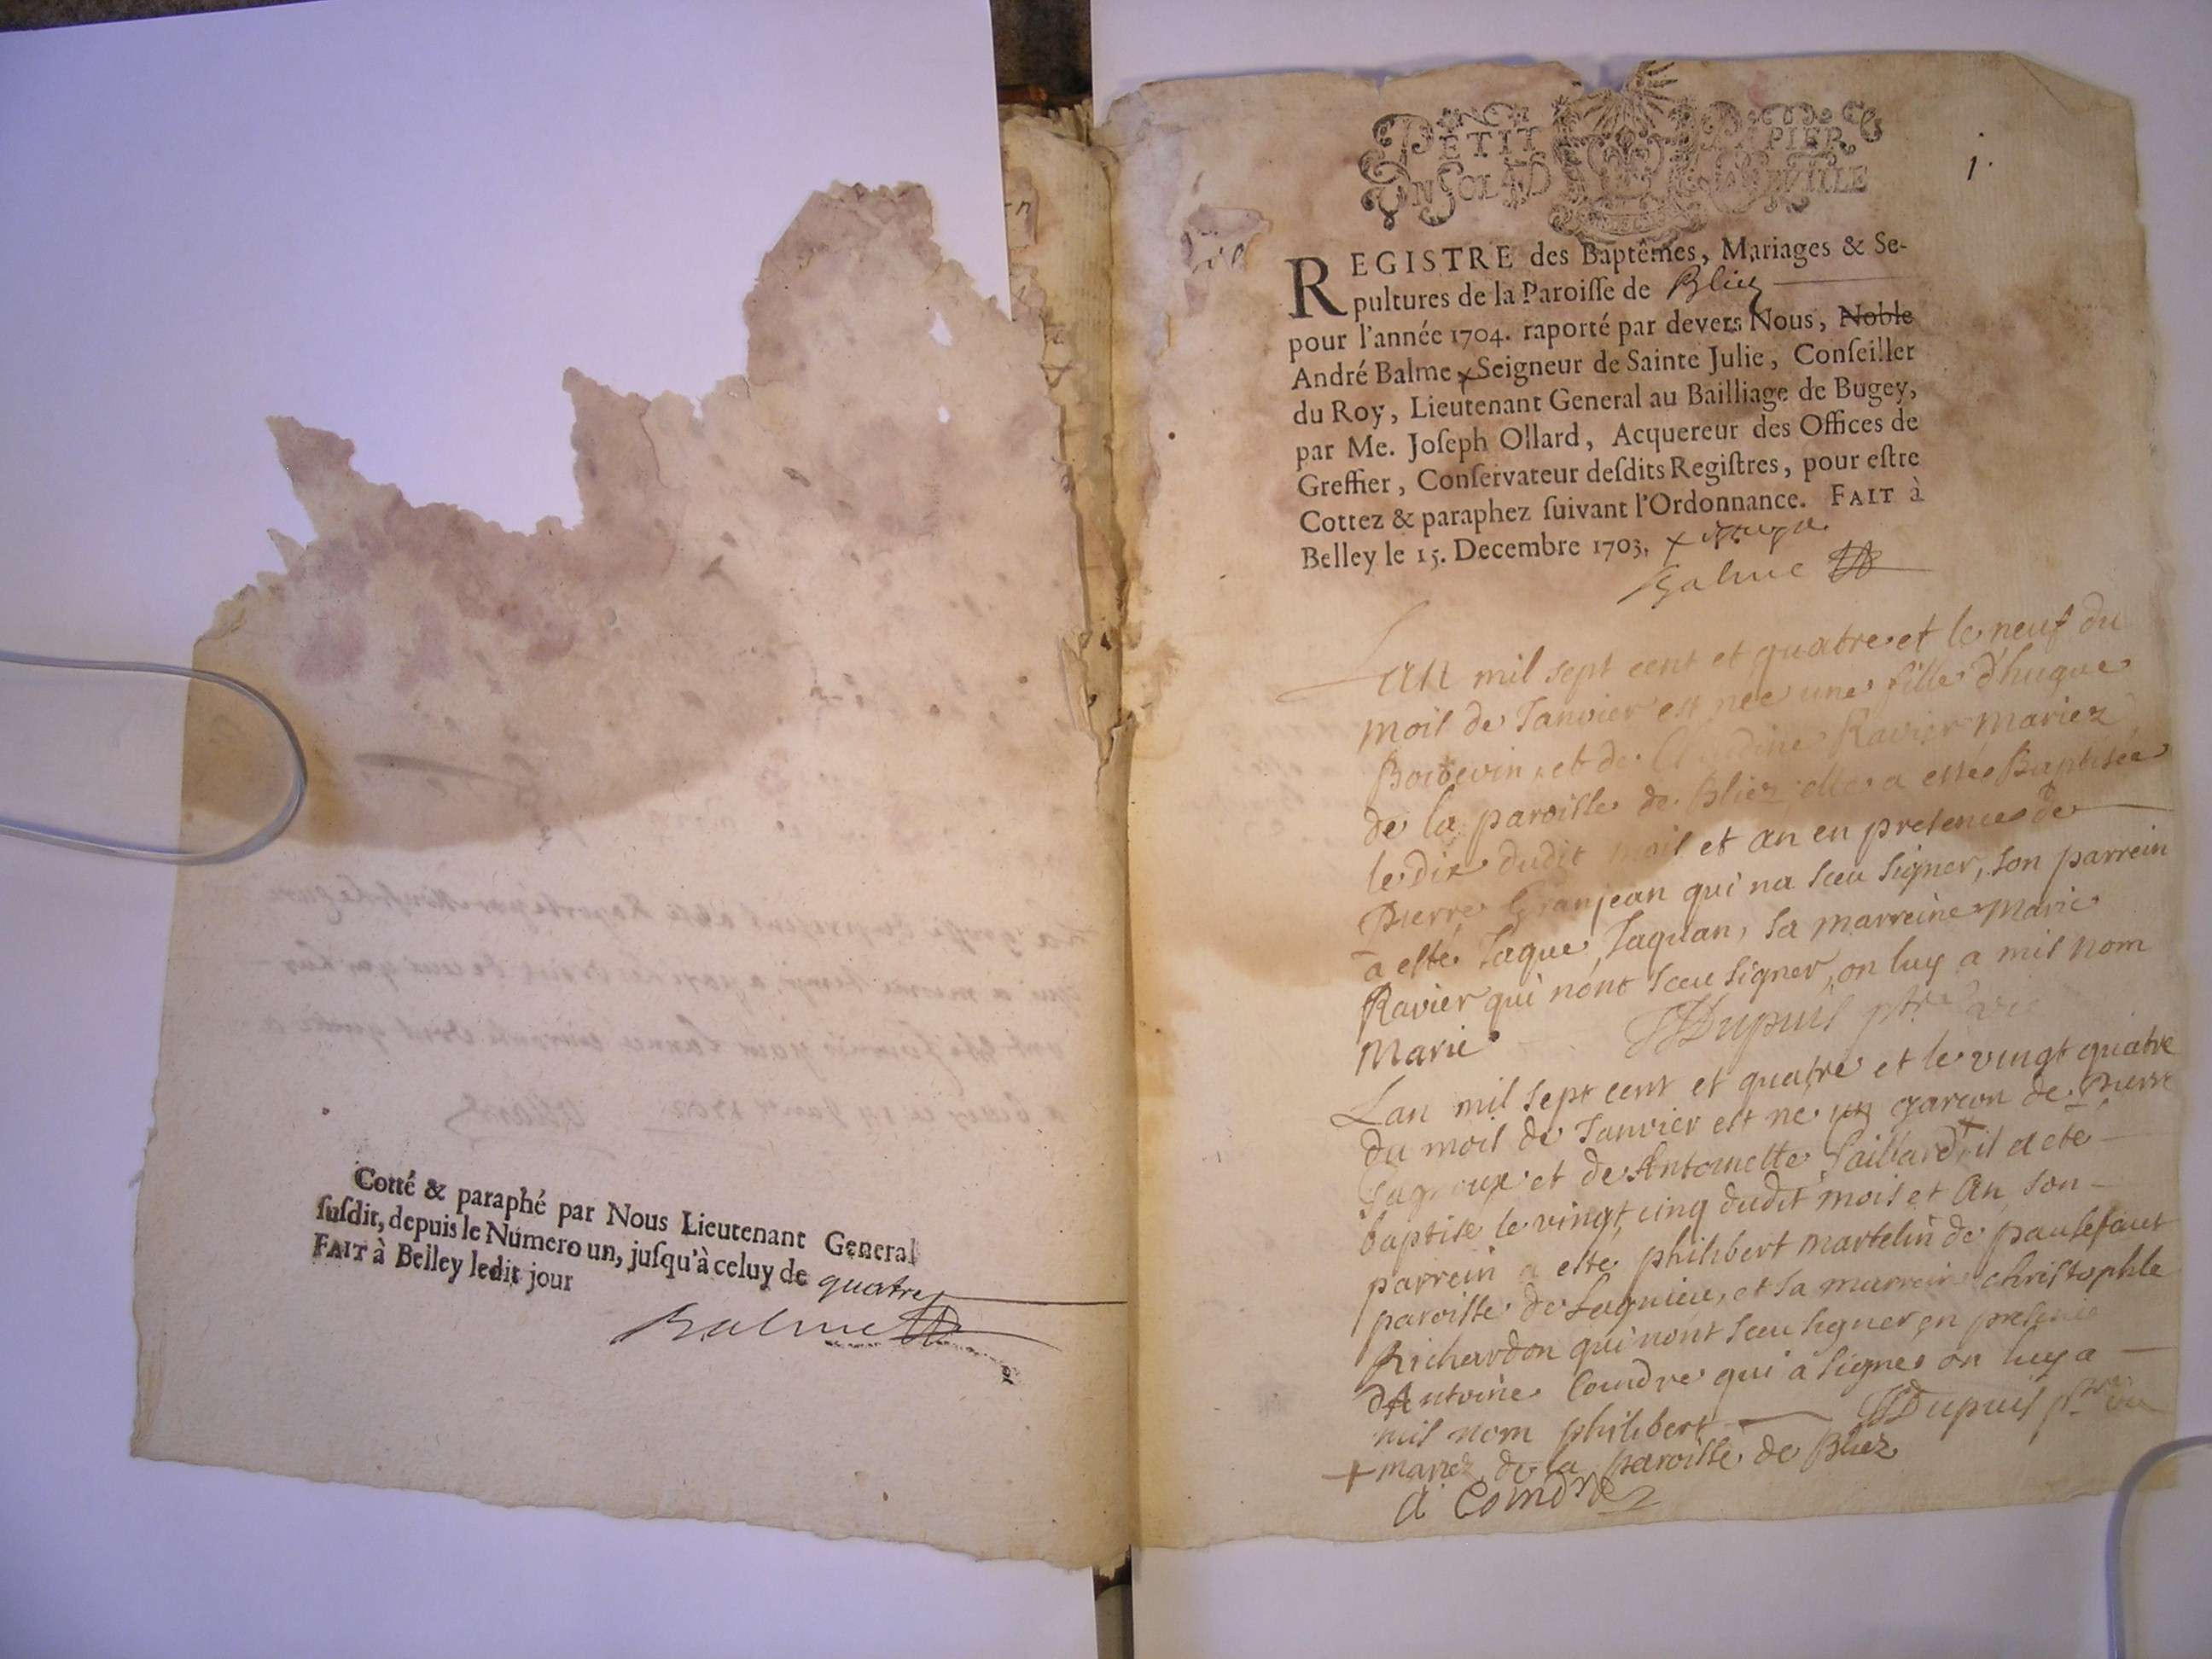 Cotté & paraphé par Nous Lieutenant General
ſuſdit, depuis le Numero un, juſqu'à celuy de quatre
FAIT à Belley ledit jour
Balme
PETIT PAPIER
1.
REGISTRE des Baptêmes, Mariages & Se-
pultures de la Paroiſſe de Bliez
pour l'année 1704. raporté par devers Nous, Noble
André Balme x Seigneur de Sainte Julie, Conſeiller
du Roy, Lieutenant General au Bailliage de Bugey,
par Me. Joſeph Ollard, Acquereur des Offices de
Greffier, Conſervateur deſdits Regiſtres, pour eſtre
Cottez & paraphez ſuivant l'Ordonnance. FAIT à
Belley le 15. Decembre 1703. x
Balme
Lan mil sept cent et quatre et le neuf du
mois de Janvier est née une fille d'hugue
et de Claudine Ravier mariez
de la paroisse de Bliez elle a esté Baptisée
le dix dudit mois et an en presence de
Pierre Granjean qui na sceu signer, son parrein
a este Jaque Jaquan, sa marreine marie
Ravier qui nont sceu signer, on luy a mis nom
Marie Dupuis ptre vic
Lan mil sept cent et quatre et le vingt quatre
du mois de Janvier est ne un garcon de Pierre
et de Antoinette + il a ete
baptise le vingt cinq dudit mois et an, son
parrein a este philibert martelin de
paroisse de Lagnieu, et sa marreine christophle
Richardon qui nont sceu signer en presence
dAntoine Coindre qui a signe on luy a
mis nom philibert Dupuis ptre vic
+ mariez de la paroisse de Bliez
A Coindre